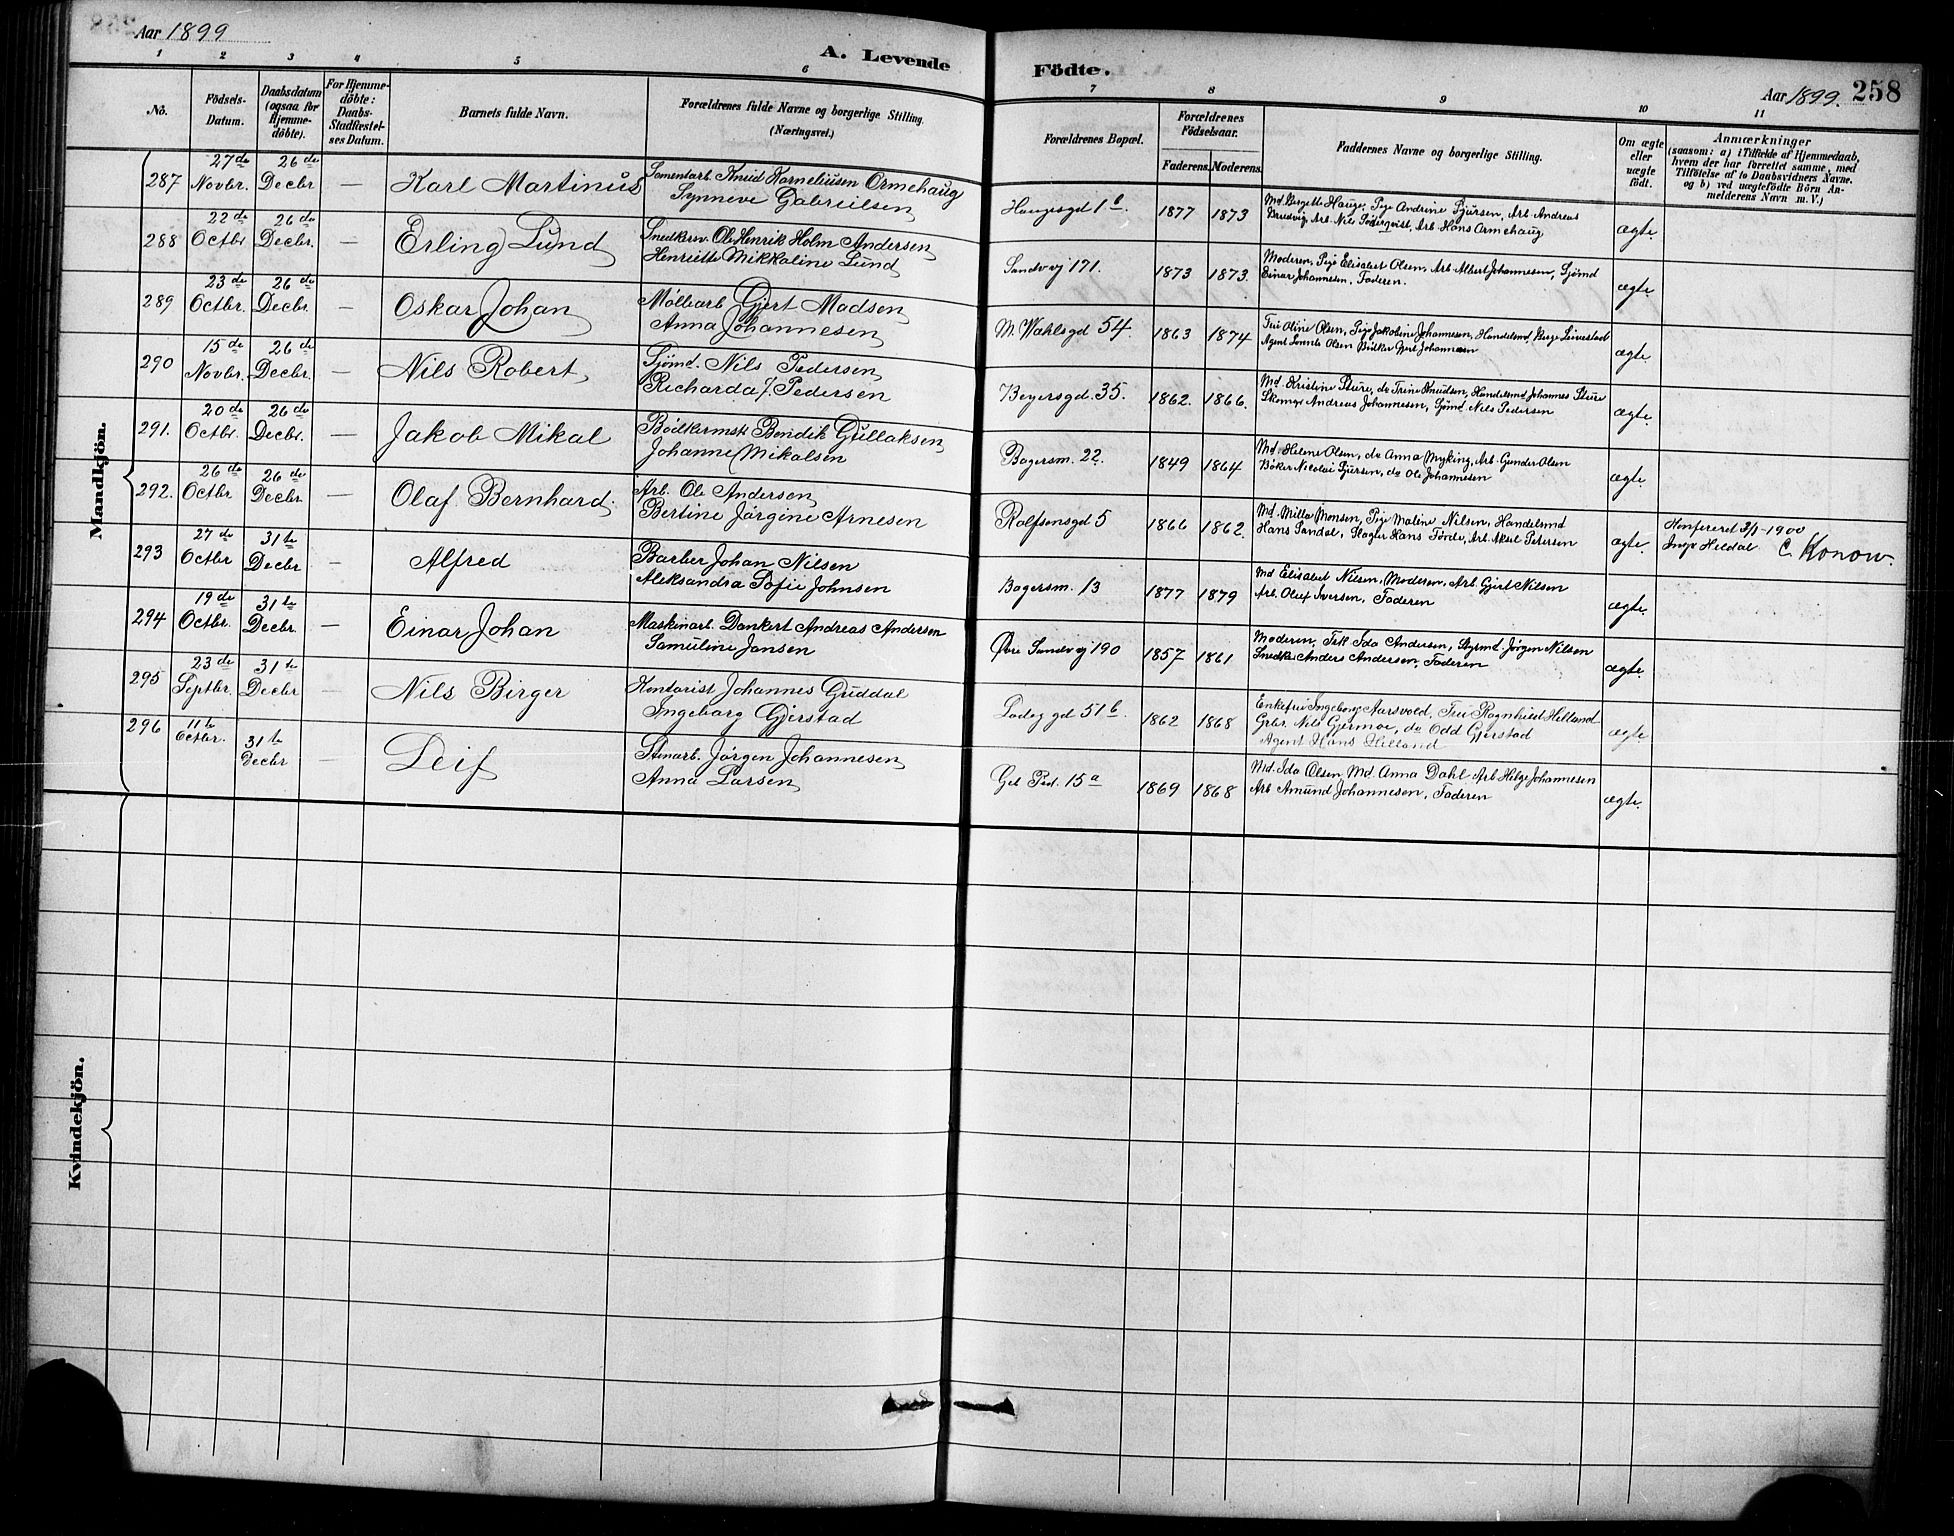 Aar 1899
A. Levende Födte.
Aar 1899. 258
1 2 3 4 5 6 7 8 9 10 11
No.
Födsels-
Datum.
Daabsdatum
(ogsaa for
Hjemme-
döbte).
For Hjemme-
döbte:
Daabs-
Stadfæstel-
ses Datum.
Barnets fulde Navn.
Forældrenes fulde Navne og borgerlige Stilling.
(Næringsvei.)
Forældrenes Bopæl.
Forældrenes
Födselsaar.
Faderens. Moderens.
Faddernes Navne og borgerlige Stilling.
Om ægte
eller
uægte
födt.
Anmærkninger
(saasom: a) i Tilfælde af Hjemmedaab,
hvem der har forrettet samme, med
Tilföielse af to Daabsvidners Navne.
og b) ved uægtefödte Börn An-
melderens Navn m. V.)
Mandkjön.
287 27de Novbr. 26de Decbr — Karl Martinus
Sementarb. Knud Korneliusen Ormehaug
Synneve Gabrielsen
Haugesgd 1b. 1877 1873
Md. Birgitte Hauge, Pige Andrine Sjursen, Arb. Andreas
Brudvig Arb. Nils Söderqvist, Arb. Hans Ormehaug
ægte.
288 22de Octbr 26de Decbr. — Erling Lund
Snedkersv. Ole Henrik Holm Andersen
Henriette Mikkaline Lund
Sandvvj 171. 1873 1873.
Moderen, Pige Elisabet Olsen, Arb. Albert Johannesen, Sjömd
Einar Johannesen, Faderen.
ægte
289 23de Octbr. 26de Decbr. — Oskar Johan
Mölbarb Gjert Madsen
Anna Johannesen
M. Wahlsgd 54. 1863 1874
Fru Oline Olsen, Pige Jakobine Johannesen, Handelsmd. Birge Leivestad
Agent Olsen Bödker Gjert Johannesen
ægte
290 15de Novbr. 26de Decbr. — Nils Robert
Sjömd. Nils Pedersen
Richarda Pedersen
Beyersgd. 35. 1862. 1866.
Md. Kristine Sture, do Trine Knudsen, Handelsmd Johannes Sture
Skomgr Andreas Johannesen, Sjömd. Nils Pedersen
ægte.
291. 20de Octbr. 26de Decbr. — Jakob Mikal
Bödkermstr Bendik Gullaksen
Johanne Mikalsen
Bagersm. 22. 1849 1864
Md. Helene Olsen, do Anna Myking, Arb. Gunder Olsen
Böker Nicolai Sjursen, do Ole Johannesen
ægte.
292. 26de Octbr 26de Decbr — Olaf Bernhard.
Arb. Ole Andersen
Bertine Jörgine Arnesen
Rolfsensgd 5 1866 1862.
Md. Milla Monsen, Pige Maline Nilsen, Handelsmd
Hans Sandal, Slagter Hans Förde, Arb. Aksel Petersen
ægte.
Konfereret 3/1-1900
Ingv Heldal C Konow.
293 27de Octbr 31te Decbr — Alfred
Barber Johan Nilsen
Aleksandra Sofie Johnsen
Bagersm. 13 1877 1879
Md Elisabet Nilsen, Moderen, Arb. Gjert Nilsen
Arb. Oluf Iversen, Faderen
ægte.
294 19de Octbr. 31te Decbr. — Einar Johan
Maskinarb. Dankert Andreas Andersen
Samuline Jansen
Övre Sandvvj 190 1857 1861
Moderen, Frk Ida Andersen, Styrmd. Jörgen Nilsen
Snedker Anders Andersen, Faderen
ægte.
295 23de Septbr. 31te Decbr — Nils Birger
Kontorist Johannes Guddal
Ingeborg Gjerstad
Ladeg gd 51b. 1862 1868
Enkefru Ingeborg Aarsvold, Fru Ragnhild Helland
Grbr. Nils Gjermoe, do Odd Gjerstad
Agent Hans Helland
ægte.
296 11te Octbr. 31te Decbr — Leif
Stenarb. Jörgen Johannesen
Anna Larsen
Geb Ped. 15a 1869 1868
Md. Ida Olsen, Md. Anna Dahl Arb Helge Johannesen
Arb Amund Johannesen, Faderen
ægte.
Kvindekjön.